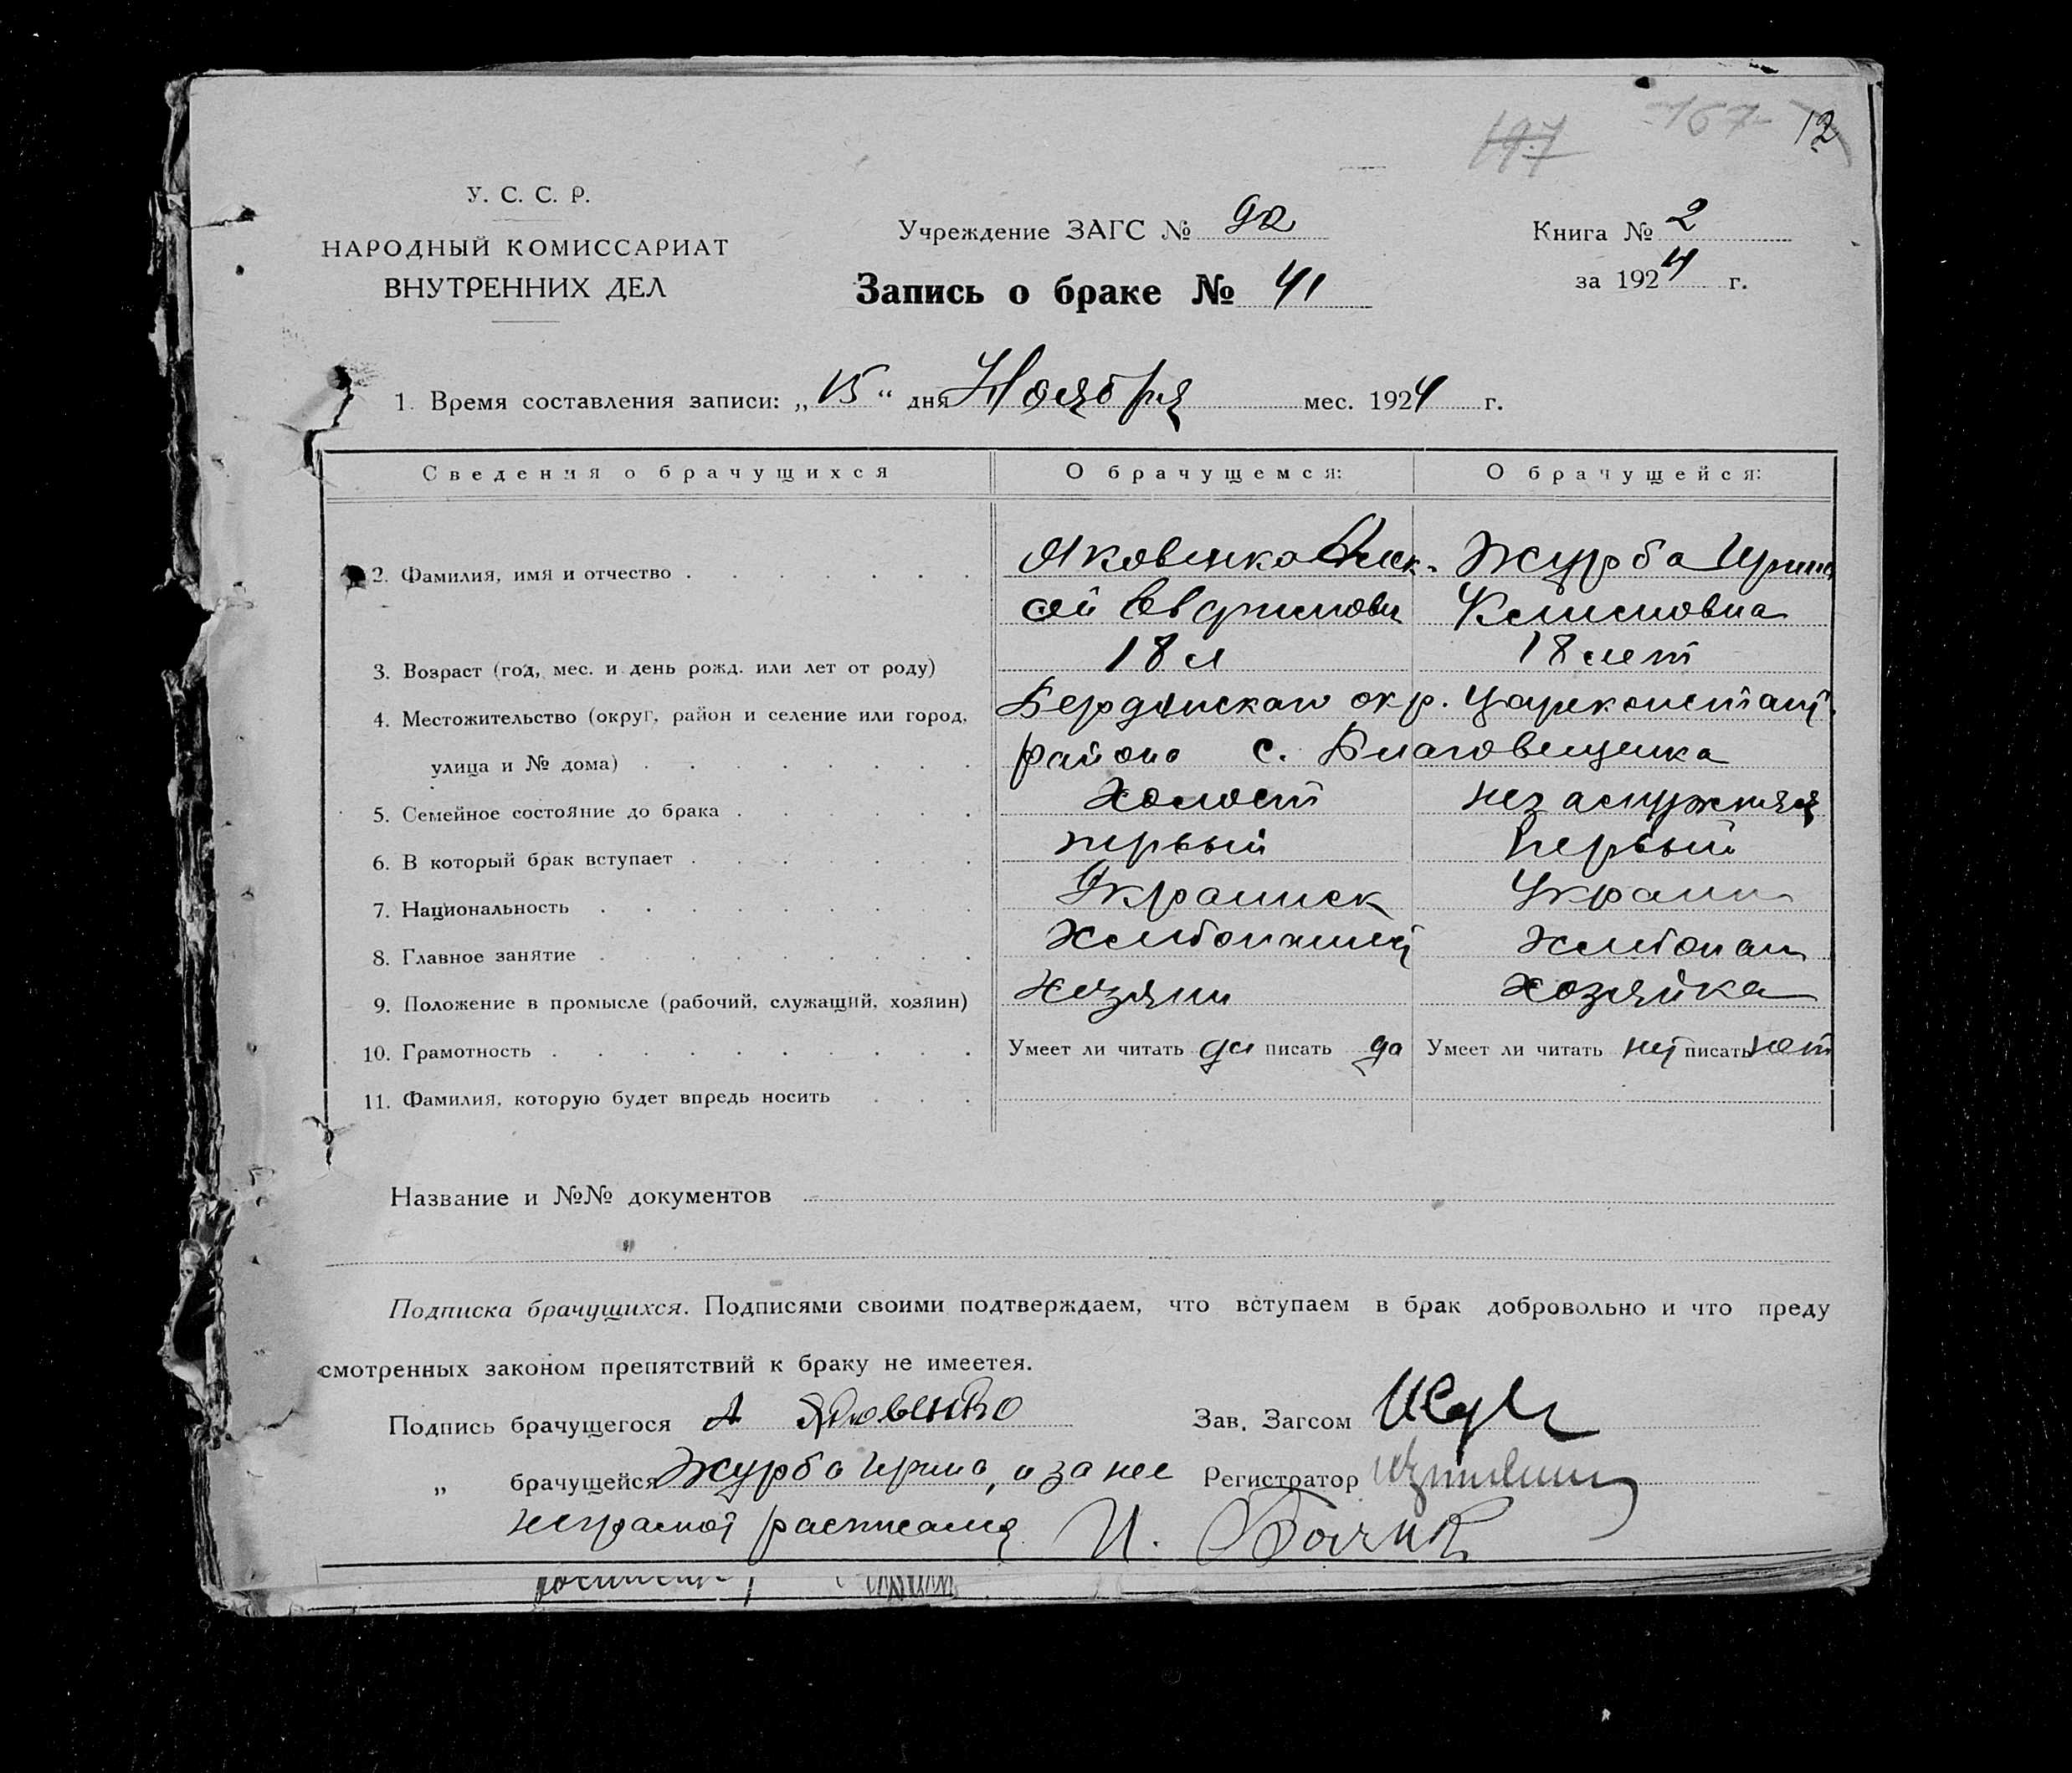 197 -167- 12
У. С. С. Р.
НАРОДНЫЙ КОМИССАРИАТ
ВНУТРЕННИХ ДЕЛ
Учреждение ЗАГС № 92
Запись о браке № 41
Книга № 2
за 1924 г.
1. Время составления записи: „15“ дня Ноября мес. 1924 г.
Сведения о брачущихся О брачущемся: О брачущейся:
2. Фамилия, имя и отчество Яковенко Алек- Журба Ирина
сей Евфимович Климовна
3. Возраст (год, мес. и день рожд. или лет от роду) 18 л 18 лет
4. Местожительство (округ, район и селение или город, Бердянскаго окр. Цареконстант.
улица и № дома) района с. Благовещенка
5. Семейное состояние до брака холост незамужняя
6. В который брак вступает первый первый
7. Национальность Украинск Украин
8. Главное занятие хлебопашец хлебопаш
9. Положение в промысле (рабочий, служащий, хозяин) хозяин хозяйка
10. Грамотность Умеет ли читать да писать да Умеет ли читать нет писать нет
11. Фамилия, которую будет впредь носить
Название и №№ документов
Подписка брачущихся. Подписями своими подтверждаем, что вступаем в брак добровольно и что преду
смотренных законом препятствий к браку не имеетея.
Подпись брачущегося А Яковенко Зав. Загсом
„ брачущейся Журба Ирина, а за нее Регистратор
неграмот расписался И.